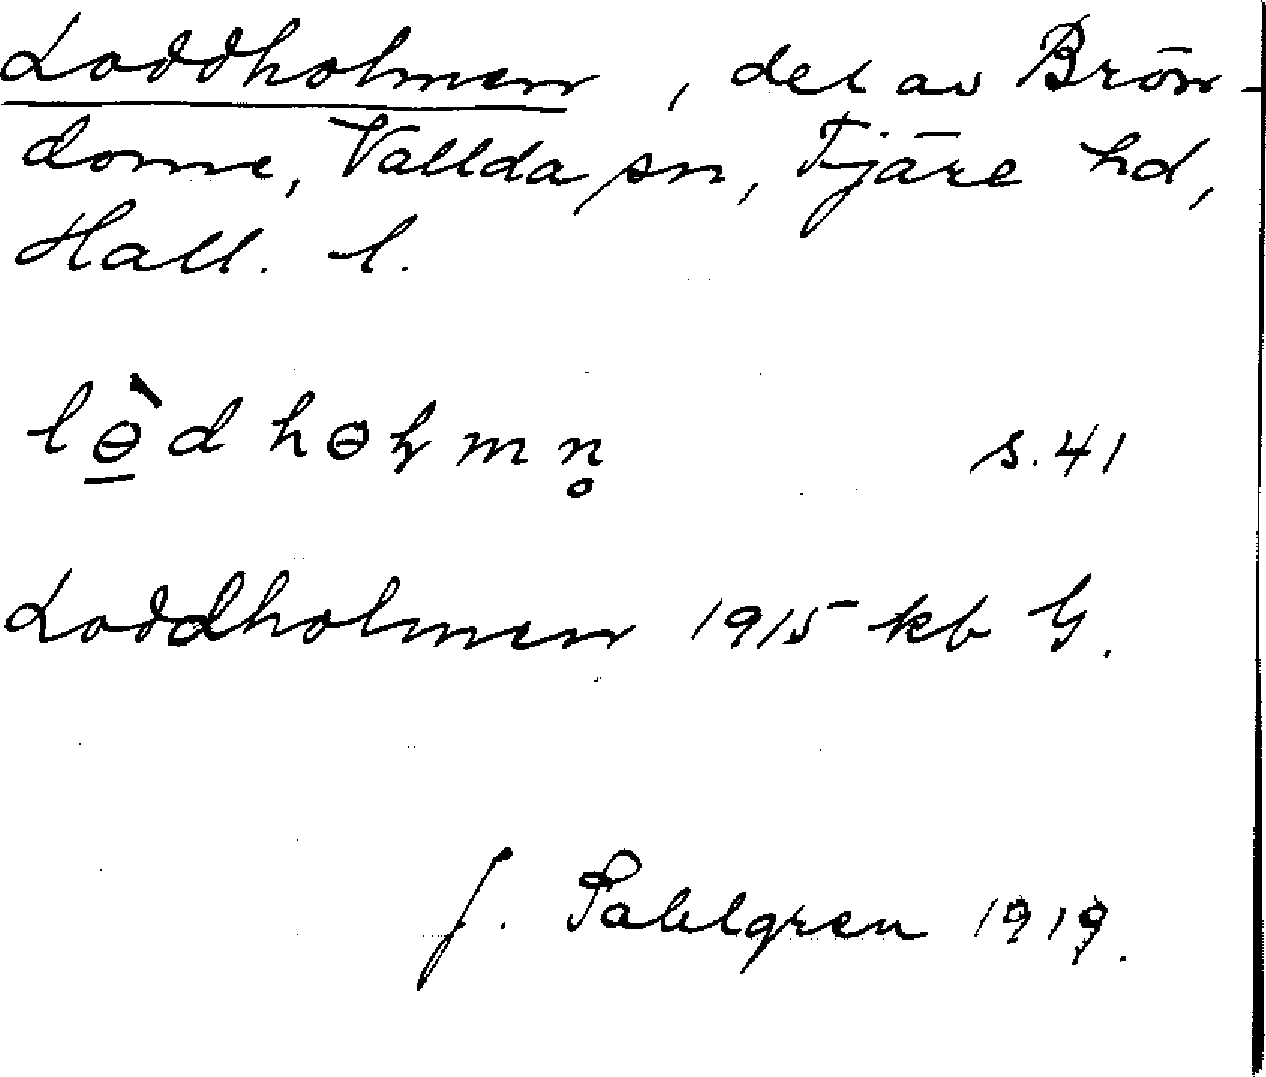 Loddholmen, del av Brön-
dome, Vallda sn, Fjäre hd,
Hall. l.
lɵ̲̀dhɵɫmn̥ s.41
Loddholmen 1915 kb G.
J. Sahlgren 1919.